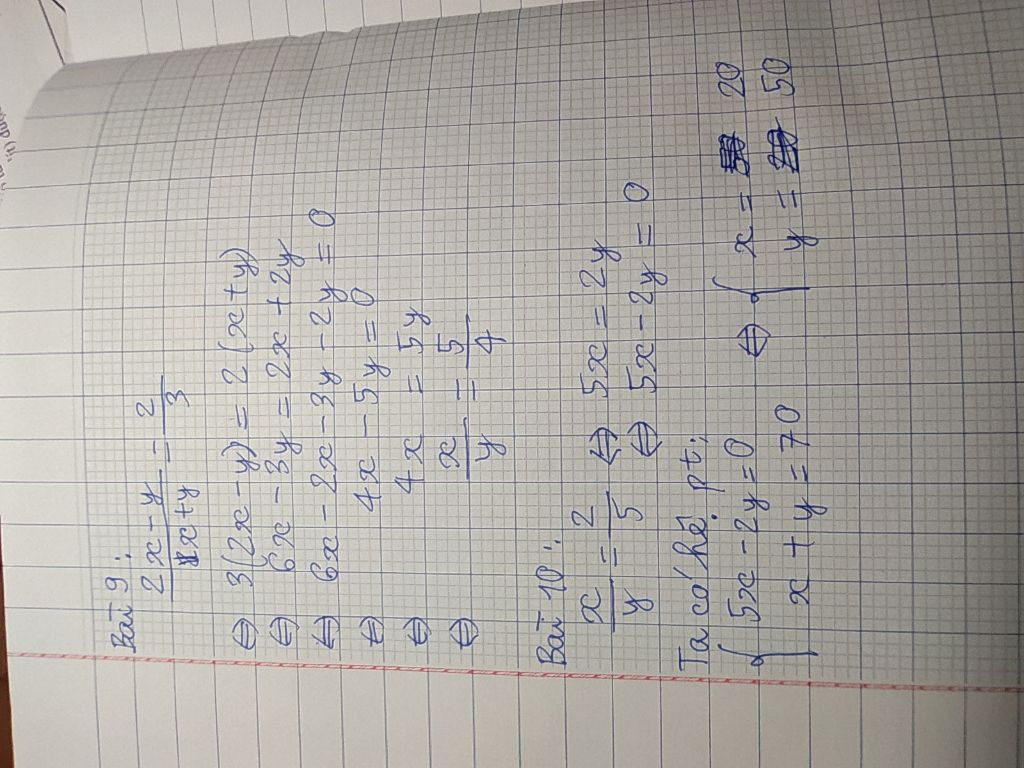 Bài 9:
2x - y / x + y = 2 / 3
⇔ 3(2x - y) = 2(x + y)
⇔ 6x - 3y = 2x + 2y
⇔ 6x - 2x - 3y - 2y = 0
⇔ 4x - 5y = 0
⇔ 4x = 5y
⇔ x / y = 5 / 4
Bài 10:
x / y = 2 / 5 ⇔ 5x = 2y
⇔ 5x - 2y = 0
Ta có hệ pt:
{ 5x - 2y = 0 ⇔ { x = 20
x + y = 70 y = 50